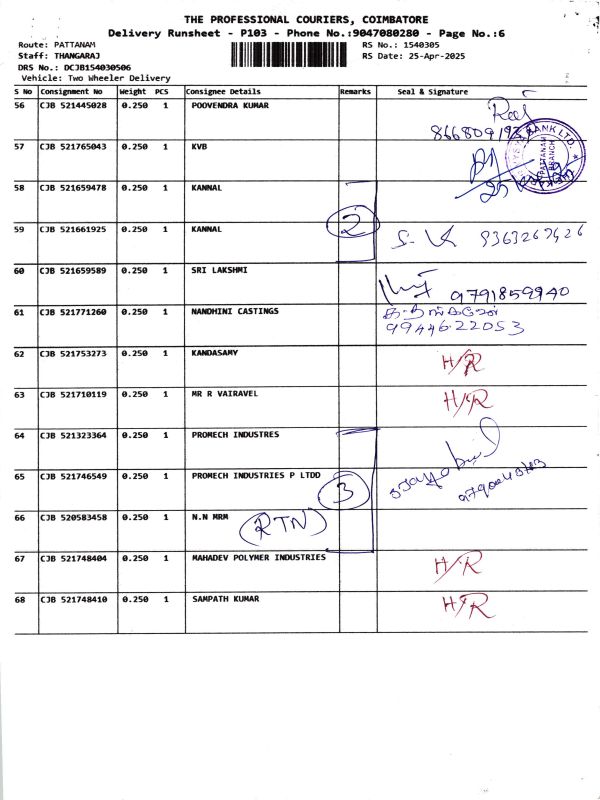 THE PROFESSIONAL COURIERS, COIMBATORE
Delivery Runsheet - P103 - Phone No.:9047080280 - Page No.:6
Route: PATTANAM RS No.: 1540305
Staff: THANGARAJ RS Date: 25-Apr-2025
DRS No.: DCJB154030506
Vehicle: Two Wheeler Delivery
S No Consignment No Weight PCS Consignee Details Remarks Seal & Signature
56 CJB 521445028 0.250 1 POOVENDRA KUMAR
57 CJB 521765043 0.250 1 KVB
BANK LTD.
PATTANAM
BRANCH
58 CJB 521659478 0.250 1 KANNAL
2
59 CJB 521661925 0.250 1 KANNAL
60 CJB 521659589 0.250 1 SRI LAKSHMI
9791859940
61 CJB 521771260 0.250 1 NANDHINI CASTINGS
99446-22053
62 CJB 521753273 0.250 1 KANDASAMY H/R
63 CJB 521710119 0.250 1 MR R VAIRAVEL H/R
64 CJB 521323364 0.250 1 PROMECH INDUSTRES
65 CJB 521746549 0.250 1 PROMECH INDUSTRIES P LTDD 3
66 CJB 520583458 0.250 1 N.N MRM RTN
67 CJB 521748404 0.250 1 MAHADEV POLYMER INDUSTRIES H/R
68 CJB 521748410 0.250 1 SAMPATH KUMAR H/R